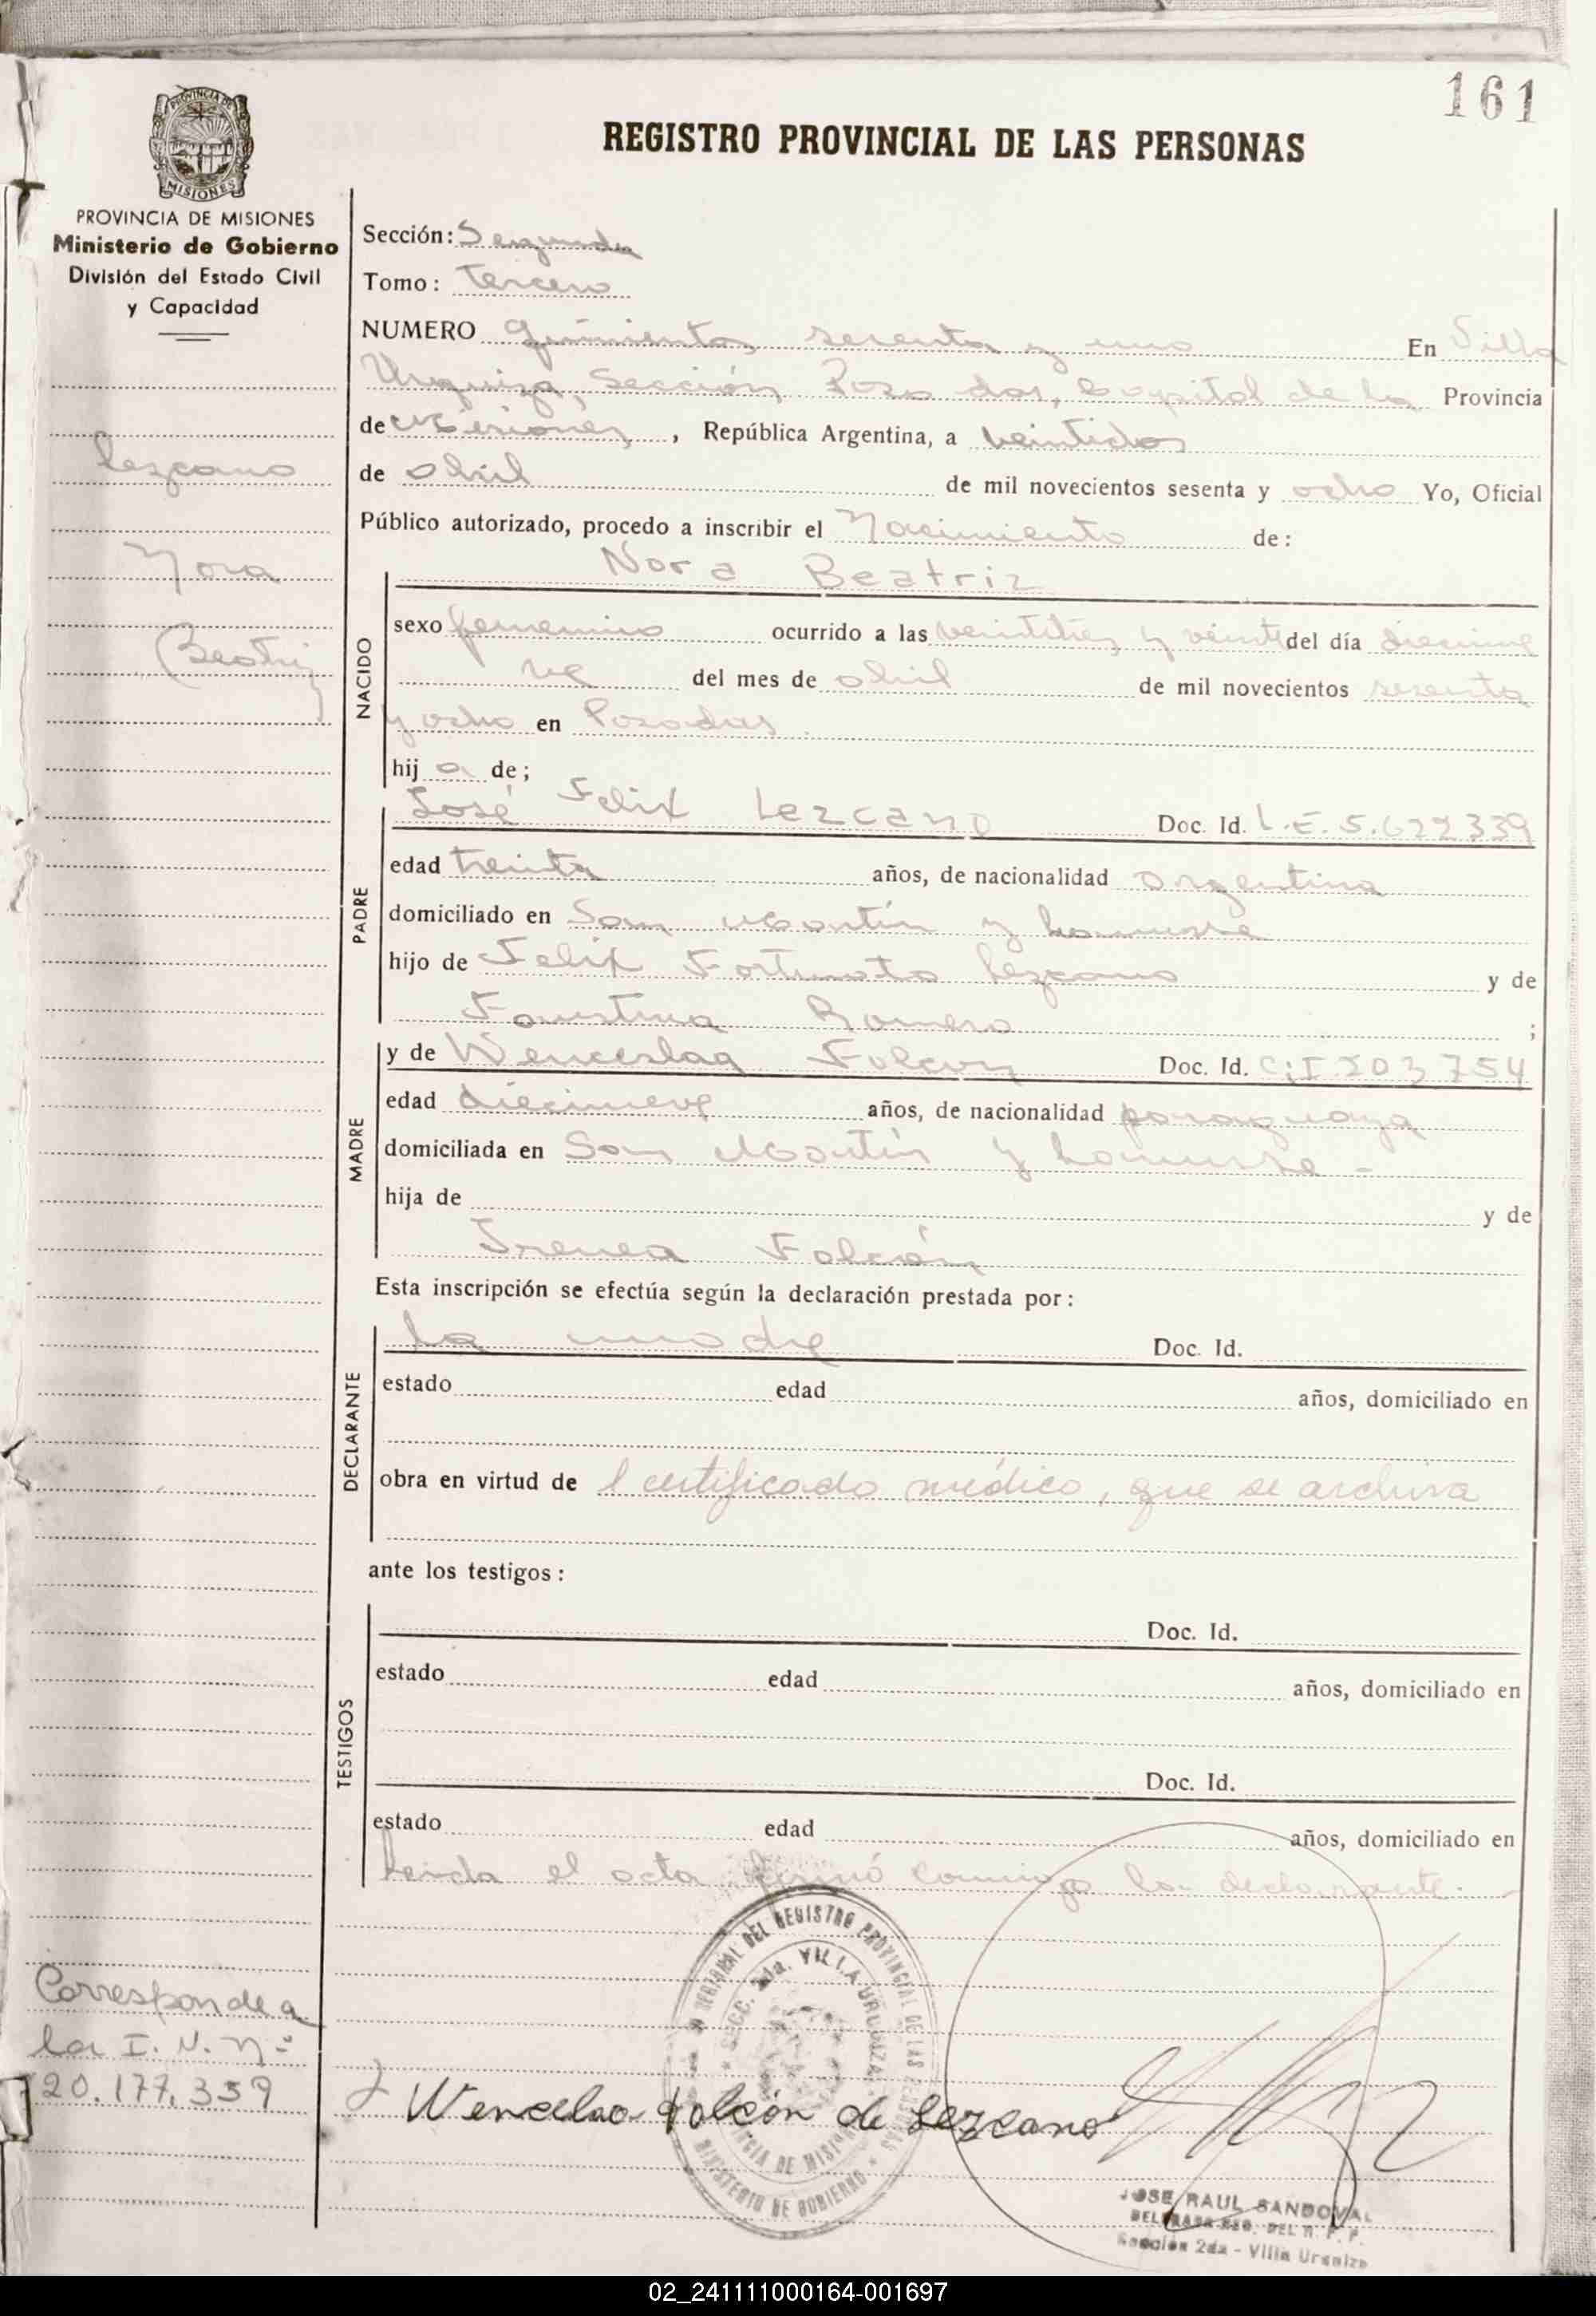 161
REGISTRO PROVINCIAL DE LAS PERSONAS
PROVINCIA DE MISIONES
Ministerio de Gobierno
División del Estado Civil
y Capacidad
Lezcano
Nora
Beatriz
Sección: Segunda
Tomo: Tercero
NUMERO quinientos sesenta y uno En Villa
Urquiza, Sección Posadas, Capital de la Provincia
de Misiones, República Argentina, a veintidos
de abril de mil novecientos sesenta y ocho Yo, Oficial
Público autorizado, procedo a inscribir el Nacimiento de:
NACIDO
Nora Beatriz
sexo femenino ocurrido a las veintitres y veinte del día diecinue
ve del mes de abril de mil novecientos sesenta
y ocho en Posadas.
hij a de;
PADRE
José Felix Lezcano Doc. Id. L.E. 5.622339
edad treinta años, de nacionalidad argentina
domiciliado en San Martín y
hijo de Felix Fortunato Lezcano y de
Faustina Romero ;
MADRE
y de Wenceslaa Falcon Doc. Id. C.I 203754
edad diecinueve años, de nacionalidad paraguaya
domiciliada en San Martín y
hija de y de
Irenea Falcón
Esta inscripción se efectúa según la declaración prestada por:
DECLARANTE
la madre Doc. Id.
estado edad años, domiciliado en
obra en virtud de l certificado médico, que se archiva
ante los testigos:
TESTIGOS
Doc. Id.
estado edad años, domiciliado en
Doc. Id.
estado edad años, domiciliado en
Leida el acta firmó conmigo la declarante.
DEL REGISTRO PROVINCIAL DE LAS PERSONAS
SECC. 2da. VILLA URQUIZA
PROVINCIA DE MISIONES
MINISTERIO DE GOBIERNO
Corresponde a
la I. N. Nº
20.177.339
Wencelao Falcón de Lezcano
JOSE RAUL SANDOVAL
DEL R. P. P.
Sección 2da - Villa Urquiza
02_241111000164-001697